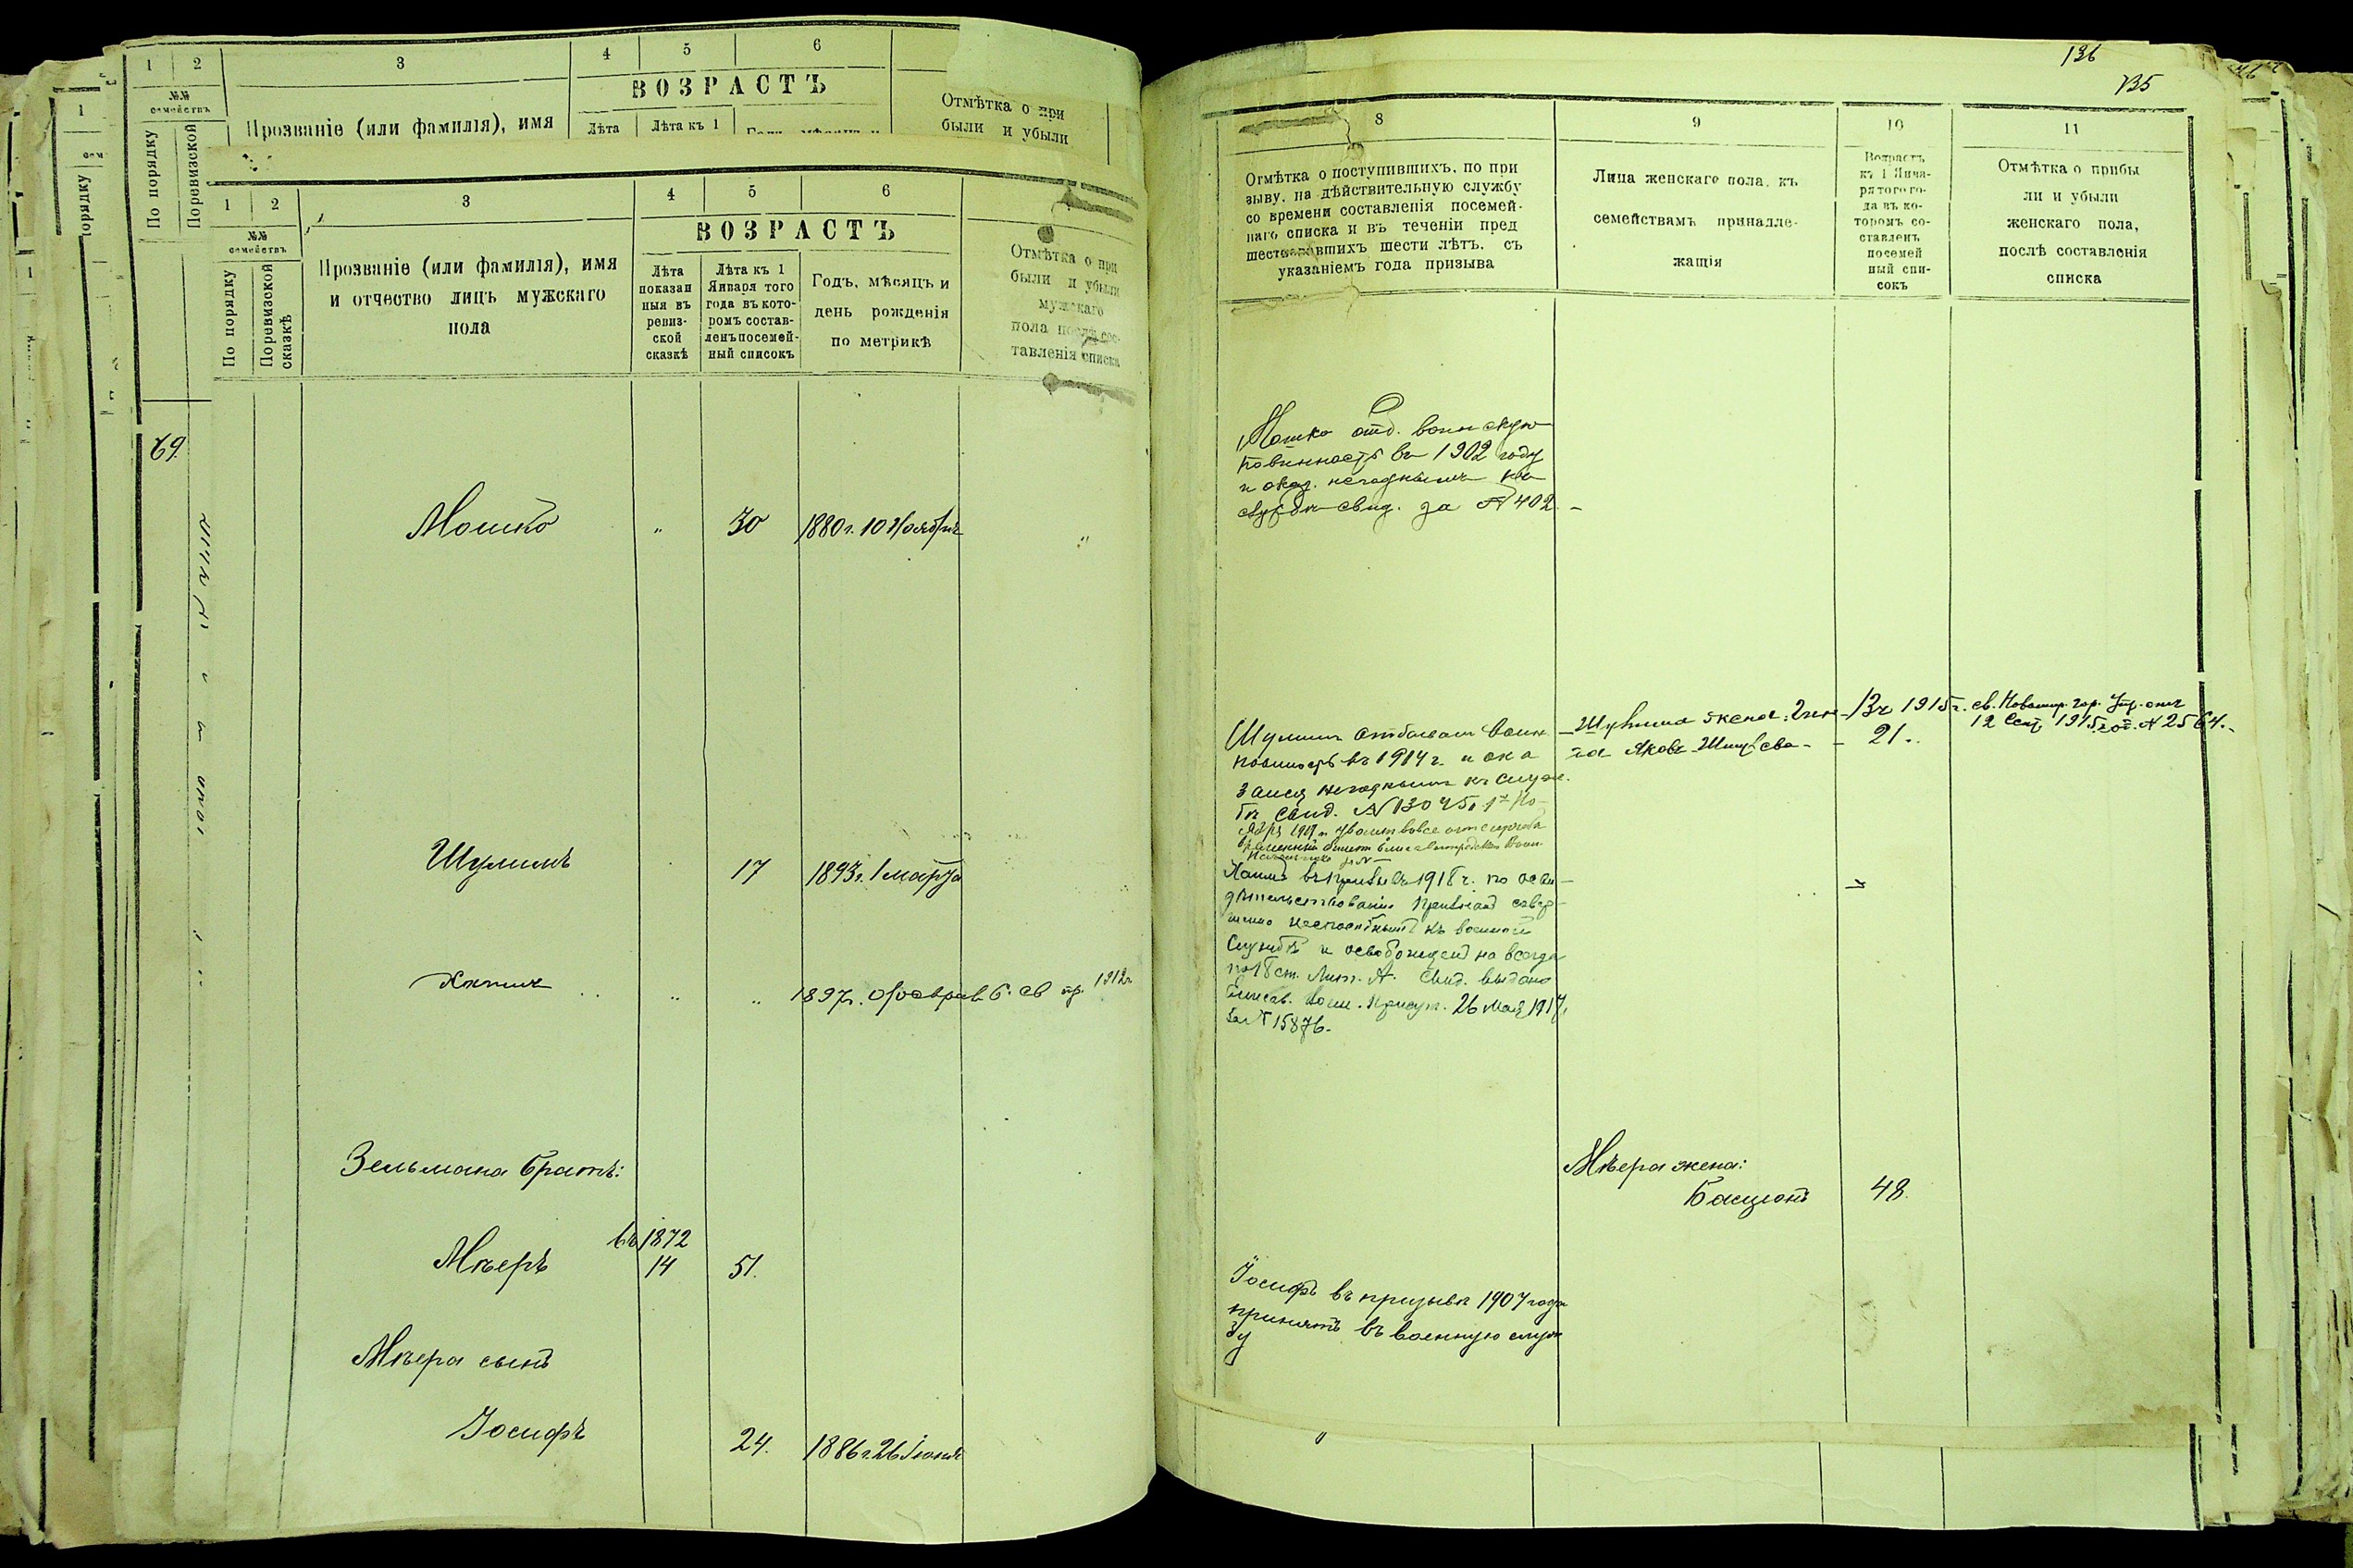 1
2
3
4
5
6
№№ семействъ
По порядку
Поревизской
Прозваніе (или фамилія), имя
ВОЗРАСТЪ
Лѣта
Лѣта къ 1
Отмѣтка о при
были и убыли
69.
1
2
3
4
5
6
№№ семействъ
По порядку
Поревизской сказкѣ
Прозваніе (или фамилія), имя
и отчество лицъ мужскаго
пола
ВОЗРАСТЪ
Лѣта
показан
ныя въ
ревиз-
ской
сказкѣ
Лѣта къ 1
Января того
года въ кото-
ромъ состав-
ленъ посемей-
ный списокъ
Годъ, мѣсяцъ и
день рожденія
по метрикѣ
Отмѣтка о при
были и убыли
мужскаго
пола послѣ сос-
тавленія списка
Мошко " 30 1880 г. 10 Ноября "
Шулимъ 17 1893 г. 1 марта
Хаимъ " " 1897 г. Февраля 6. св пр. 1912 г.
Зельмана братъ:
въ 1872
Мѣеръ 14 51.
Мѣера сынъ
Іосифъ 24. 1886 г. 26 Іюня
136
135
8
9
10
11
Отмѣтка о поступившихъ, по при
зыву, на дѣйствительную службу
со времени составленія посемей-
наго списка и въ теченіи пред
шествовавшихъ шести лѣтъ, съ
указаніемъ года призыва
Лица женскаго пола, къ
семействамъ принадле-
жащія
Возрастъ
къ 1 Янва-
ря того го-
да въ ко-
торомъ со-
ставленъ
посемей
ный спи-
сокъ
Отмѣтка о прибы
ли и убыли
женскаго пола,
послѣ составленія
списка
Мошко отб. воинскую
повинность въ 1902 году
и оказ. негоднымъ къ
службѣ свид. за № 402.-
Шулимъ отбывалъ воин.
повинность въ 1914 г. и ока
зался негоднымъ къ служ-
бѣ свид. № 13045. 1го Но-
ября уволенъ вовсе отъ службы
временный билетъ
Начальника за № -
Хаимъ въ призывъ 1918 г. по осви-
дѣтельствованіи признанъ совер-
шенно неспособнымъ къ военной
службѣ и освобожденъ на всегда
по 18 ст. Лит. А. Свид. выдано
Елисав. воин. присут. 26 Мая 1917,
за № 15876.
Шулима жена: 13ч 1915 г. св. Новомир. гор. Упр. отъ
21. 12 Сент. 1915 год. № 2564.-
Мѣера жена:
Басціонъ 48.
Іосифъ въ призывъ 1907 года
принятъ въ военную служ
бу